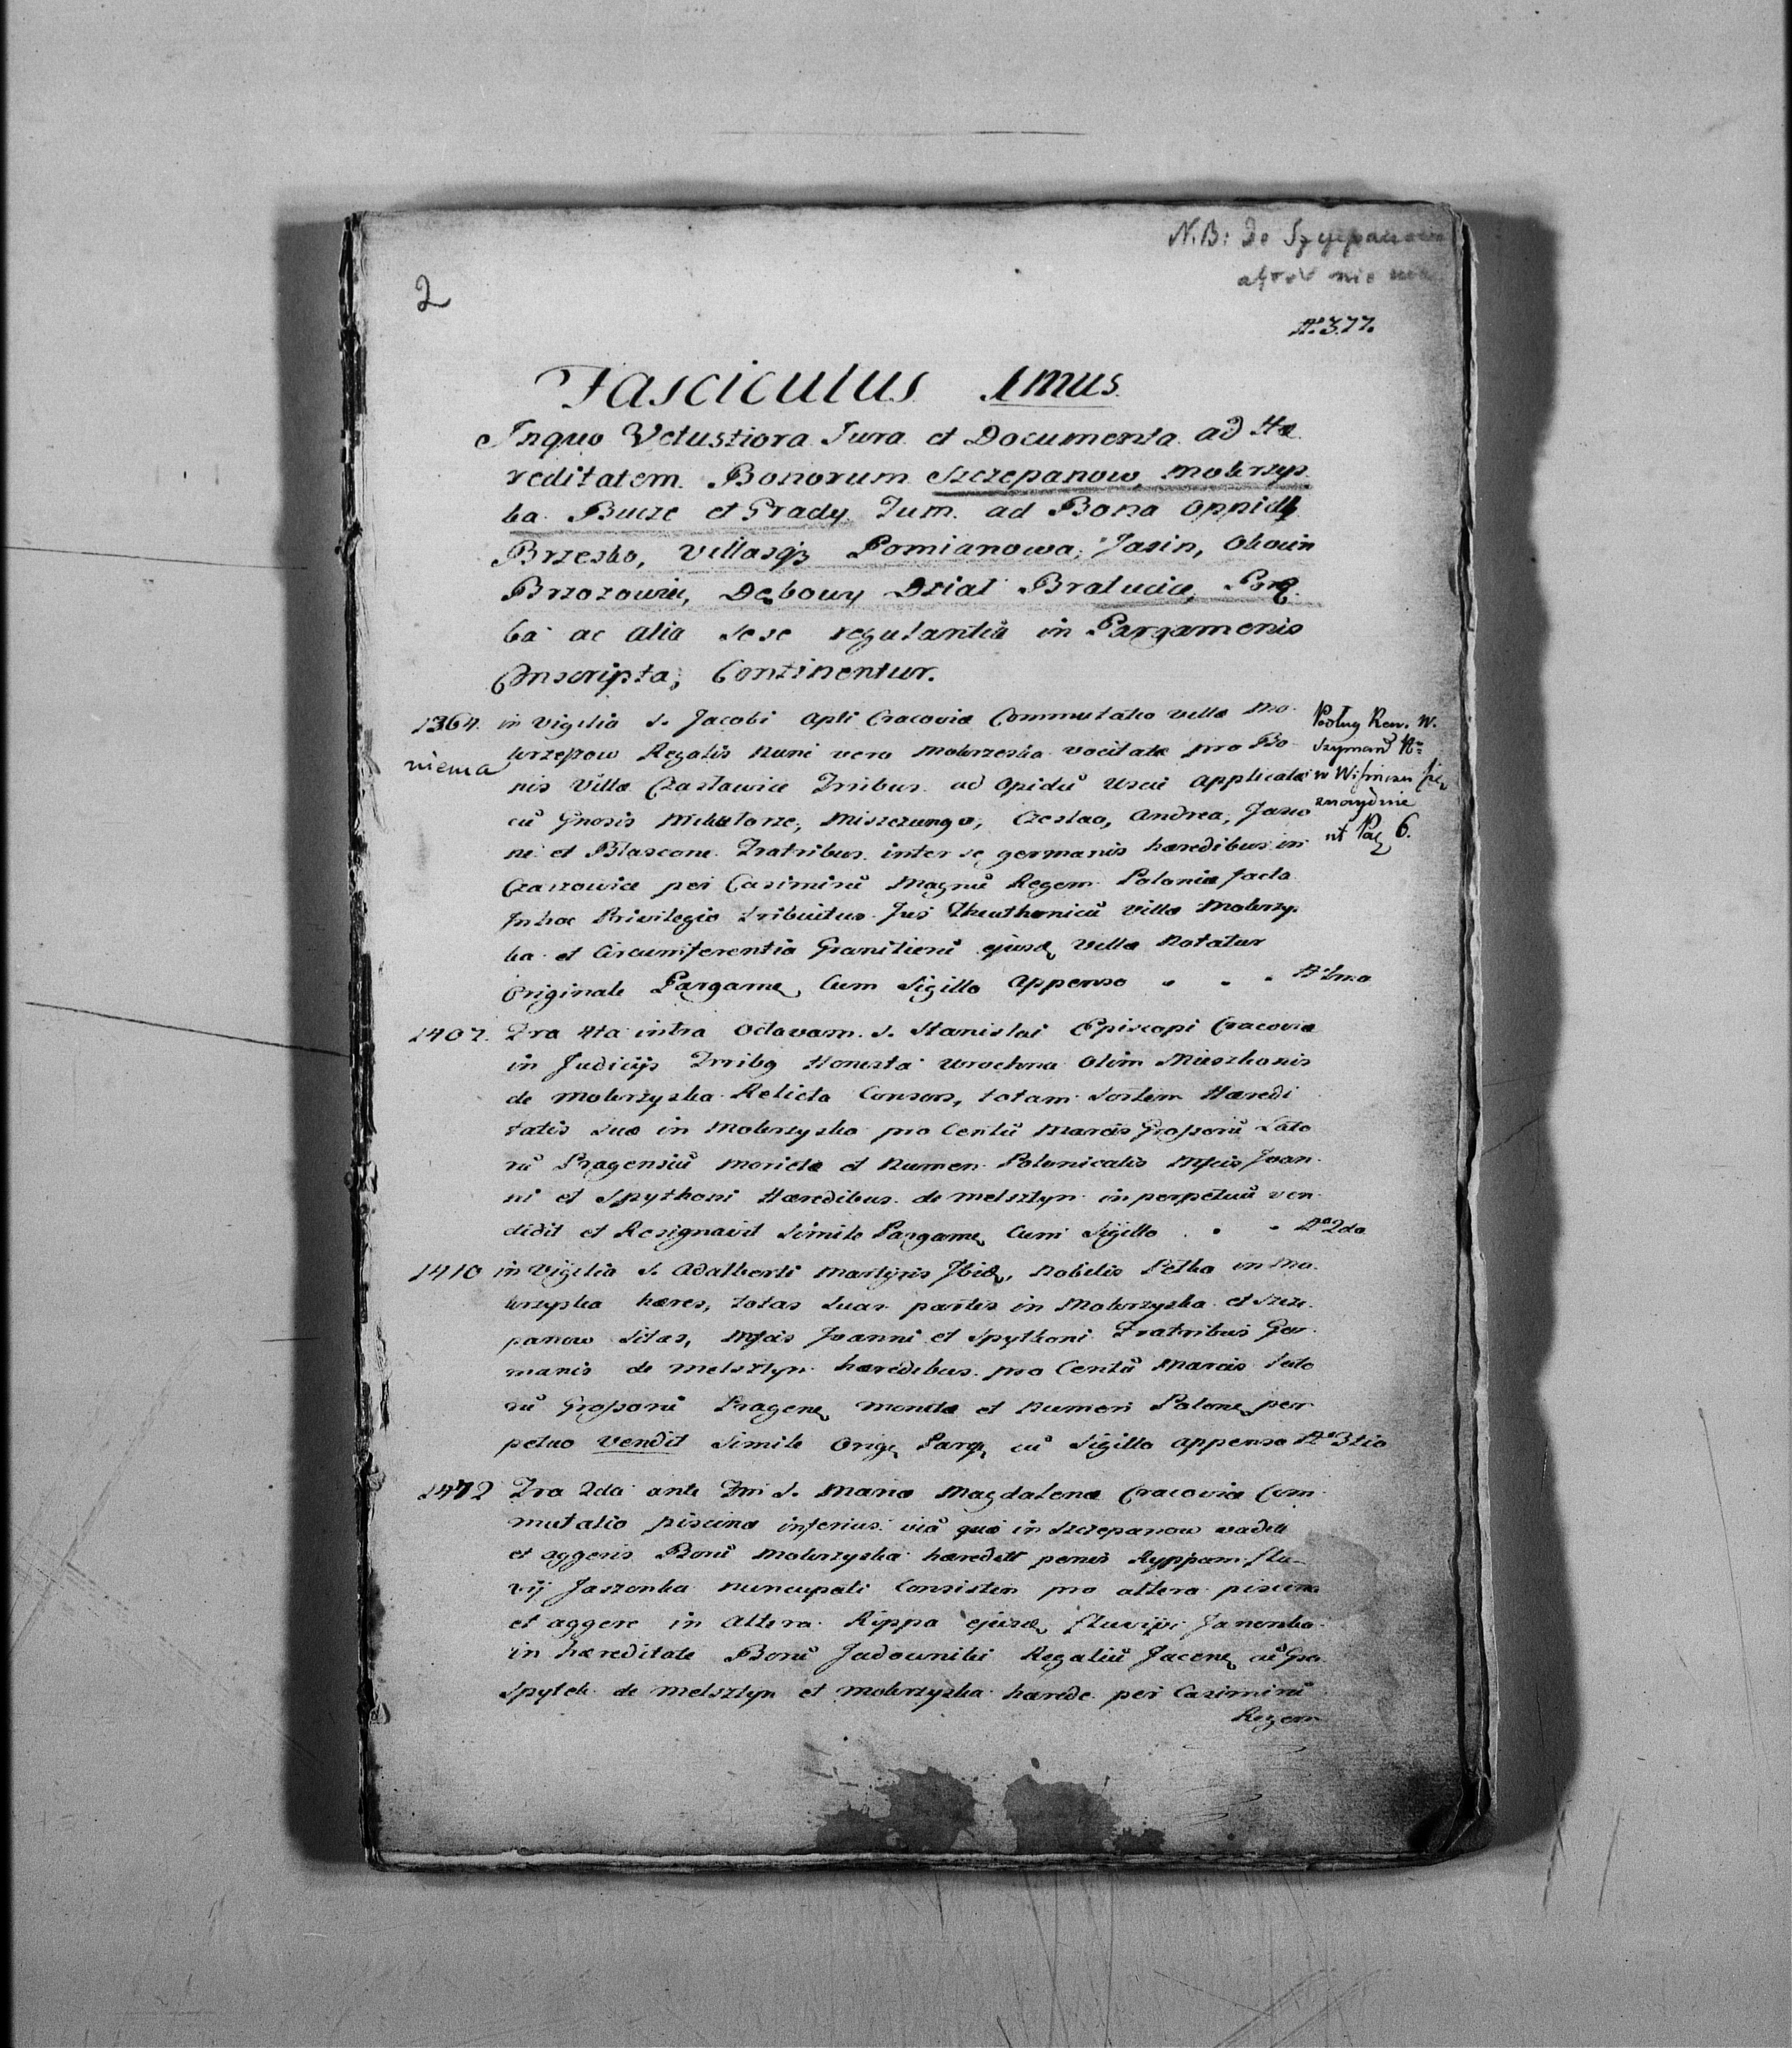 N.B: Do Szczepanowa
aktów nie ma
2
N.º 377.
Fasciculus Imus.
Inquo Vetustiora Jura et Documenta ad Hæ
reditatem Bonorum Szczepanow, Mokrzys
ka Bucze et Grądy Tum ad Bona Oppidi
Brzesko, Villasqȝ Pomianowa, Jasin, Okocim
Brzozowiec, Dębowy Dział Bratucice, Porę
ba ac alia sese regulantia in Pargamenis
Conscripta, Continentur.
1364. in Vigilia S. Jacobi Apli Cracoviæ Commutatio villæ Mo
niema
krzepow Regalis Nunc vero Mokrzeska vocitatæ pro Bo
nis Villæ Czasławice Tribus ad Opidū Uscie Applicatæ
cū Gnosis Mikułorze, Misczungo, Czeslao, Andrea, Jasco
ne et Blascone Fratribus inter se germanis hæredibus in
Czaszowice per Casimirū Magnū Regem Poloniæ facta
Inhoc Privilegio tribuitus Jus Theuthonicū Villæ Mokrzy
ka et Circumferentia Granitierū ejusd Villæ Notatur
Originale Pargame Cum Sigillo Appenso . . . Nº 1mo
Podług Rew. W.
Szyman
w Wisniczu
znayduie
ut Pag 6.
1407. Fra 4ta intra Octavam S. Stanislai Episcopi Cracoviæ
in Judicijs Honesta Wrochna Olim Mieszkonis
de Mokrzyska Relicta Consors, totam Sortem Hæredi
tatis suæ in Mokrzysko pro Centū Marcis Grossorū Lato
rū Pragensiū Monetæ et Numeri Polonicalis Mfcis Joan
ni et Spythoni Hæredibus de Melsztyn in perpetuū ven
didit et Resignavit Simile Pargame Cum Sigillo . . Nº 2do
1410 in Vigilia S. Adalberti Martyris Ibid, Nobilis Petko in Mo
krzyska hæres, totas suas partes in Mokrzyska et Szcze
panow Sitas, Mfcis Joanni et Spythoni Fratribus Ger
manis de Melsztyn hæredibus pro Centū Marcis Lato
rū Grossorū Pragen Monetæ et Numeri Polon per
petuo Vendit Simile Orig Parg cū Sigillo appenso Nº 3tio
1472 Fra 2da ante S. Mariæ Magdalenæ Cracoviæ Com
mutatio piscinæ inferius viā quæ in Szczepanow vadit
et aggeris Bonū Mokrzyska hæredit penes Ryppam flu
vij Jaszonka Nuncupati Consisten pro altera piscina
et aggere in Altera Rippa ejusd fluvij Janonka
in hæreditate Bonū Jadowniki Regaliū Jacen cū Gso
Spytek de Melsztyn et Mokrzyska hærede per Casimirū
Regem